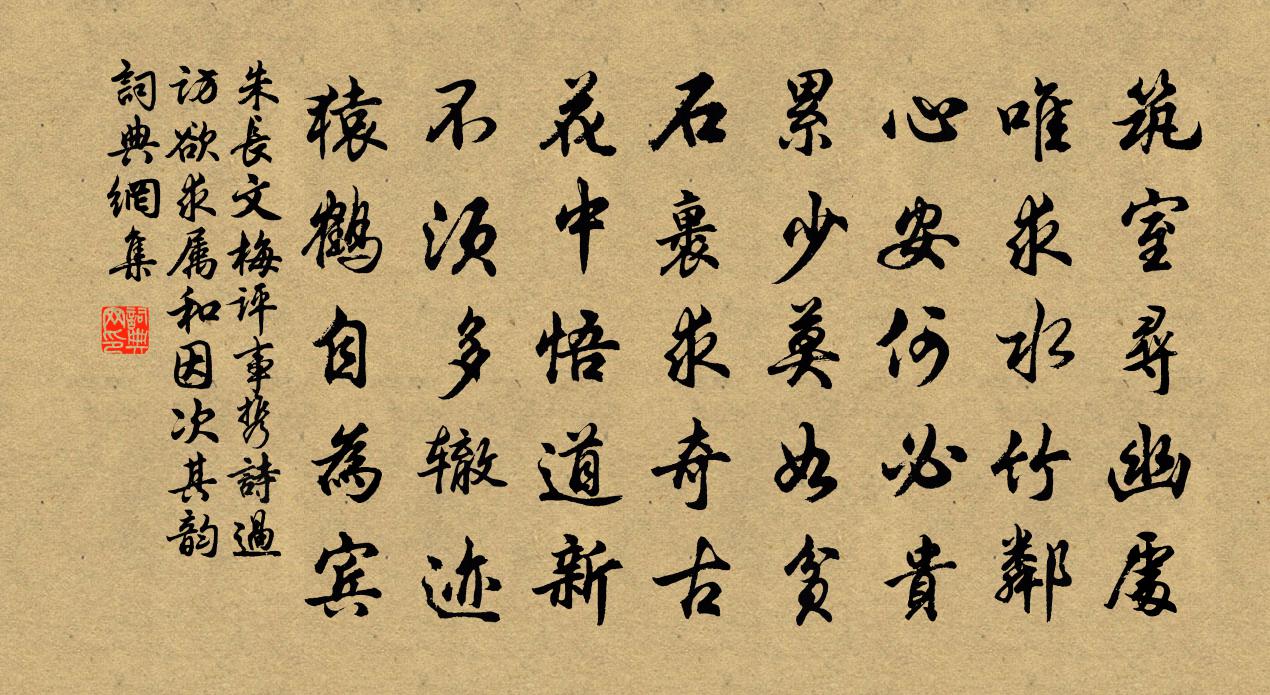 筑室尋幽處
唯求水竹鄰
心安何必貴
累少莫如貧
石裏求奇古
花中悟道新
不須多轍迹
猿鶴自為賓
朱長文梅評事携詩過
訪欲求属和因次其韵
詞典網集
詞典网印